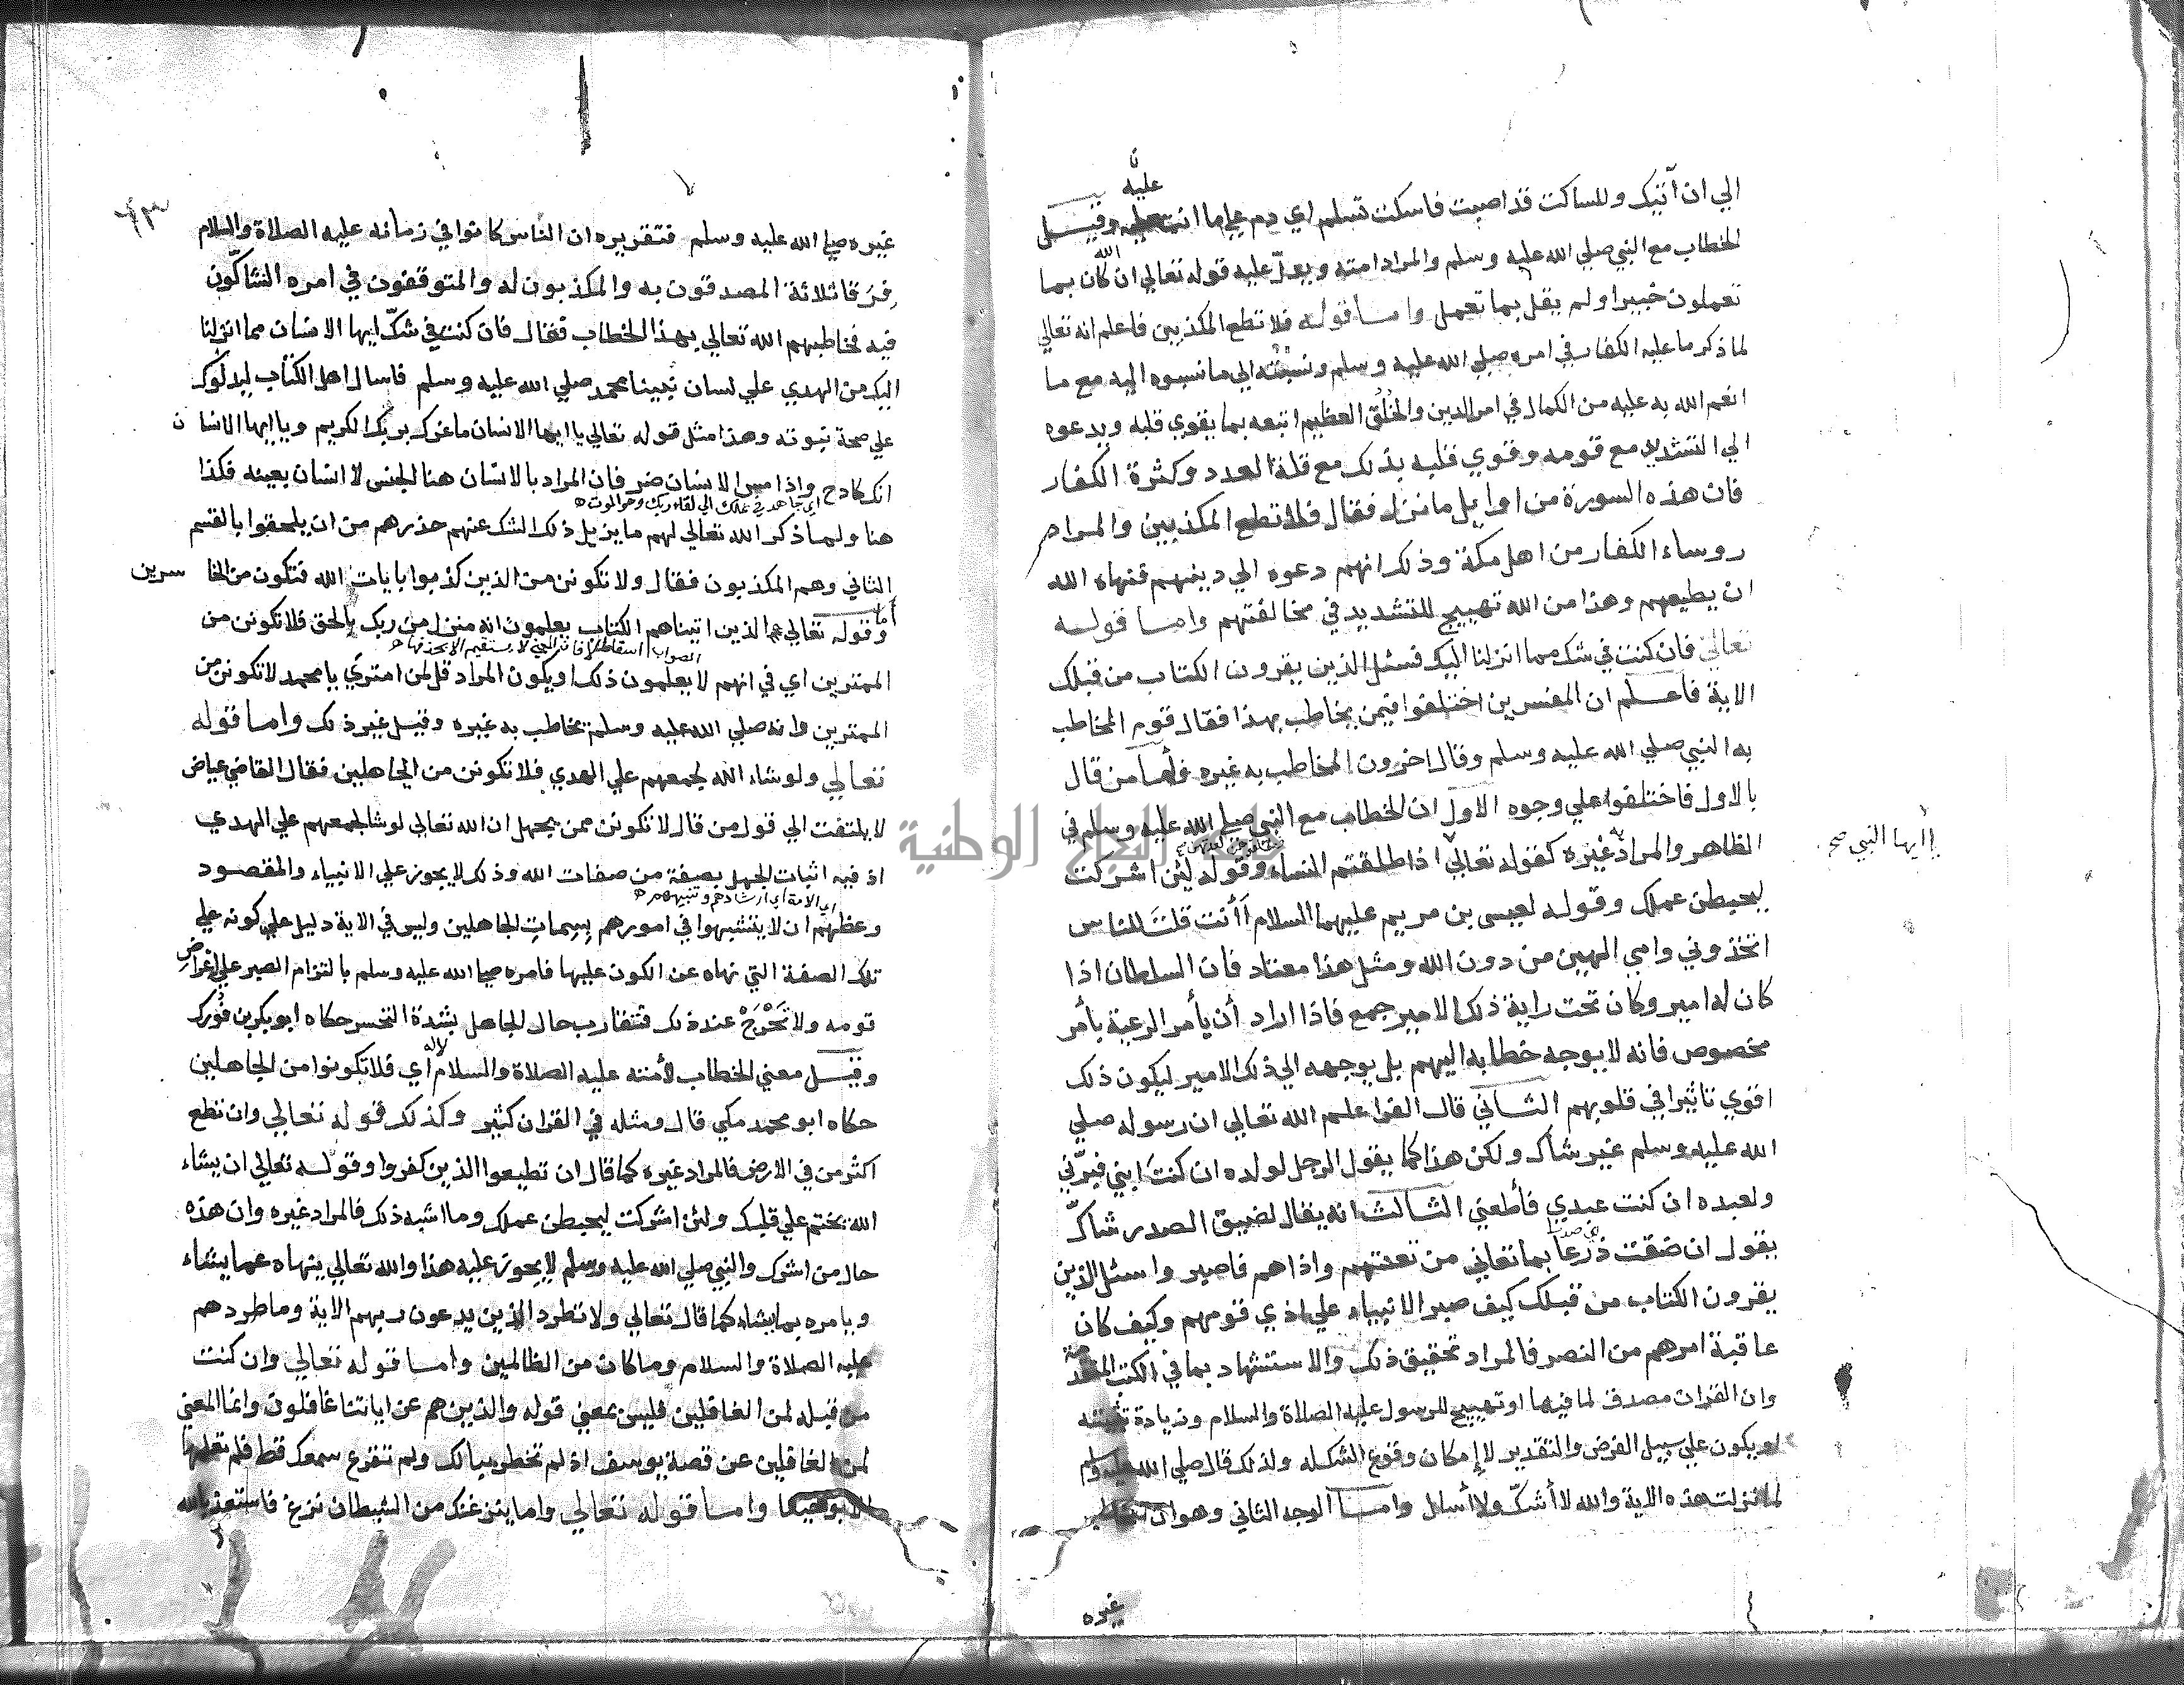 الي ان آتيك وللساكت قد اصبت فاسكت تسلم اي دم علي ما انت عليه وقيل
الخطاب مع النبي صلي الله عليه وسلم والمراد امته ويدل عليه قوله تعالي ان الله كان بما
تعملون خبيرا ولم يقل بما تعمل واما قوله فلا تطع المكذبين فاعلم انه تعالي
لما ذكر ما عليه الكفار في امره صلي الله عليه وسلم ونسبته الي ما نسبوه اليه مع ما
انعم الله به عليه من الكمال في امر الدين والخلق العظيم اتبعه بما يقوي قلبه ويدعوه
الي التشديد مع قومه وقوي قلبه بذلك مع قلة العدد وكثرة الكفار
فان هذه السورة من اوايل ما نزل فقال فلا تطع المكذبين والمراد
روساء الكفار من اهل مكة وذلك انهم دعوه الي دينهم فنهاه الله
ان يطيعهم وهذا من الله تهييج للتشديد في مخالفتهم واما قوله
تعالي فان كنت في شك مما انزلنا اليك فسئل الذين يقرون الكتاب من قبلك
الاية فاعلم ان المفسرين اختلفوا فيمن يخاطب بهذا فقال قوم المخاطب
به النبي صلي الله عليه وسلم وقال اخرون المخاطب به غيره فأما من قال
بالاول فاختلفوا علي وجوه الاول ان الخطاب مع النبي صلي الله عليه وسلم في
الظاهر والمراد به غيره كقوله تعالي اذا طلقتم النساء وقوله لئن اشركت
يا أيها النبي صح
ليحبطن عملك وقوله لعيسي بن مريم عليهما السلام أأنت قلت للناس
اتخذوني وامي الهين من دون الله ومثل هذا معتاد فان السلطان اذا
كان له امير وكان تحت راية ذلك الامير جمع فاذا اراد أن يأمر الرعية بأمر
مخصوص فانه لا يوجه خطابه اليهم بل يوجهه الي ذلك الامير ليكون ذلك
اقوي تاثيرا في قلوبهم الثاني قال الفرا علم الله تعالي ان رسوله صلي
الله عليه وسلم غير شاك ولكن هذا كما يقول الرجل لولده ان كنت ابني فبرني
ولعبده ان كنت عبدي فأطعني الثالث انه يقال لضيق الصدر شاك
يقول ان ضقت ذرعا بما تعاني من تعنتهم واذاهم فاصبر واسئل الذين
يقرون الكتاب من قبلك كيف صبر الانبياء علي اذي قومهم وكيف كان
عاقبة امرهم من النصر فالمراد تحقيق ذلك والاستشهاد بما في الكتب المتقدمة
وان القران مصدق لما فيها او تهييج للرسول عليه الصلاة والسلام وزيادة تثبيته
او يكون علي سبيل الفرض والتقدير لا إمكان وقوع الشك له ولذلك قال صلي الله عليه وسلم
لما نزلت هذه الاية والله لا أشك ولا أسال واما الوجه الثاني وهو ان المخاطب
غيره
غيره صلي الله عليه وسلم فتقريره ان الناس كانوا في زمانه عليه الصلاة والسلام
فرقا ثلاثة المصدقون به والمكذبون له والمتوقفون في امره الشاكون
فيه فخاطبهم الله تعالي بهذا الخطاب فقال فان كنت في شك ايها الانسان مما انزلنا
اليك من الهدي علي لسان نبينا محمد صلي الله عليه وسلم فاسال اهل الكتاب ليدلوك
علي صحة نبوته وهذا مثل قوله تعالي يا ايها الانسان ما غرك بربك الكريم ويا ايها الانسان
انك كادح واذا مس الانسان ضر فان المراد بالانسان هنا الجنس لا انسان بعينه فكذا
اي جاهد في عملك الي لقاء ربك وهو الموت
هنا ولما ذكر الله تعالي لهم ما يزيل ذلك الشك عنهم حذرهم من ان يلحقوا بالقسم
الثاني وهم المكذبون فقال ولا تكونن من الذين كذبوا بايات الله فتكون من الخاسرين
وأما قوله تعالي الذين اتيناهم الكتاب يعلمون انه منزل من ربك بالحق فلا تكونن من
الممترين اي في انهم لا يعلمون ذلك او يكون المراد قل لمن امتري يا محمد لا تكونن من
الممترين وانه صلي الله عليه وسلم يخاطب به غيره وقيل غير ذلك واما قوله
تعالي ولو شاء الله لجمعهم علي الهدي فلا تكونن من الجاهلين فقال القاضي عياض
لا يلتفت الي قول من قال لا تكونن ممن يجهل ان الله تعالي لو شا لجمعهم علي الهدي
اذ فيه اثبات الجهل بصفة من صفات الله وذلك لا يجوز علي الانبياء والمقصود
اي الامة اي ارشادهم وتنبيههم
وعظهم ان لا يتشبهوا في امورهم بسمات الجاهلين وليس في الاية دليل علي كونه علي
تلك الصفة التي نهاه عن الكون عليها فامره صلي الله عليه وسلم بالتزام الصبر علي اعراض
قومه ولا تحرج عند ذلك فتقارب حال الجاهل بشدة التحسر حكاه ابو بكر بن فورك
وقيل معني الخطاب لأمته عليه الصلاة والسلام لا له اي فلا تكونوا من الجاهلين
حكاه ابو محمد مكي قال ومثله في القران كثير وكذلك قوله تعالي وان تطع
اكثر من في الارض فالمراد غيره كما قال ان تطيعوا الذين كفروا وقوله تعالي ان يشاء
الله يختم علي قلبك ولئن اشركت ليحبطن عملك وما اشبه ذلك فالمراد غيره وان هذه
حال من اشرك والنبي صلي الله عليه وسلم لا يجوز عليه هذا والله تعالي ينهاه عما يشاء
ويامره بما يشاء كما قال تعالي ولا تطرد الذين يدعون ربهم الاية وما طردهم
عليه الصلاة والسلام وما كان من الظالمين واما قوله تعالي وان كنت
من قبله لمن الغافلين فليس بمعني قوله والذين هم عن اياتنا غافلون وانما المعني
لمن الغافلين عن قصة يوسف اذ لم تخطر ببالك ولم تقرع سمعك قط فلم تعلمها
الا بوحينا واما قوله تعالي واما ينزغنك من الشيطان نزغ فاستعذ بالله